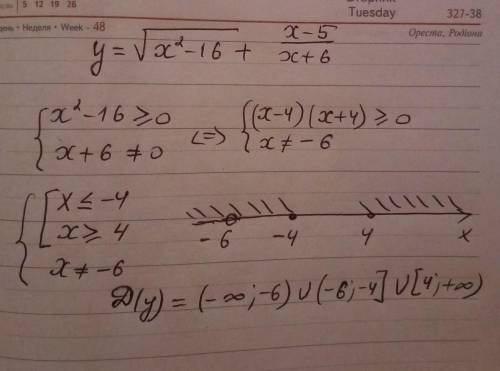 5 12 19 26
Tuesday
327-38
Неделя • Week - 48
Ореста, Родіона
y = √(x²-16) + (x-5)/(x+6)
{ x²-16 ≥ 0 <=> { (x-4)(x+4) ≥ 0
{ x+6 ≠ 0 { x ≠ -6
{ [ x ≤ -4
[ x ≥ 4
x ≠ -6
-6 -4 4 x
D(y) = (-∞; -6) ∪ (-6; -4] ∪ [4; +∞)